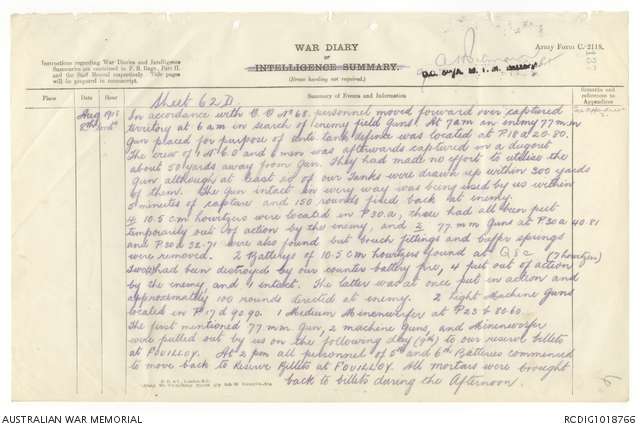 WAR DIARY
or
INTELLIGENCE SUMMARY.
(Erase heading not required.)
Army Form C. 2118.
137
Instructions regarding War Diaries and Intelligence
Summaries are contained in F. S. Regs., Part II.
and the Staff Manual respectively. Title pages
will be prepared in manuscript.
Place Date Hour Summary of Events and Information Remarks and references to Appendices
Sheet 62D.
Aug 1918 In accordance with O.O No 68. personnel moved forward over captured
8th territory at 6 am in search of enemy field guns. At 7am an enemy 77 m.m
gun placed for purpose of anti tank defence was located at P18 a 20.80.
The crew of 1 N.C.O and 6 men was afterwards captured in a dugout
about 50 yards away from gun. They had made no effort to utilise the
gun although at least 20 of our Tanks were drawn up within 300 yards
of them. The gun intact in every way was being used by us within
5 minutes of capture and 150 rounds fired back at enemy.
4 10.5 cm howitzers were located in P30.a, these had all been put
temporarily out of action by the enemy, and 2 77 m.m Guns at P30a 40.81
and P30a 32.71 were also found but breech fittings and buffer springs
were removed. 2 Batterys of 10.5 cm howitzers found at Q8c (7 howitzers)
two had been destroyed by our counter battery fire, 4 put out of action
by the enemy, and 1 intact. The latter was at once put in action and
approximately 100 rounds directed at enemy. 2 Light Machine Guns
located in P17 d 90.90. 1 Medium Minenwerfer at P23 b 80.60.
The first mentioned 77 m.m Gun, 2 machine Guns, and Minenwerfer
were pulled out by us on the following day (9th) to our reserve billets
at FOUILLOY. At 2 pm all personnel of 5th and 6th Batteries commenced
to move back to Reserve Billets at FOUILLOY. All mortars were brought
back to billets during the Afternoon.
AUSTRALIAN WAR MEMORIAL
RCDIG1018766